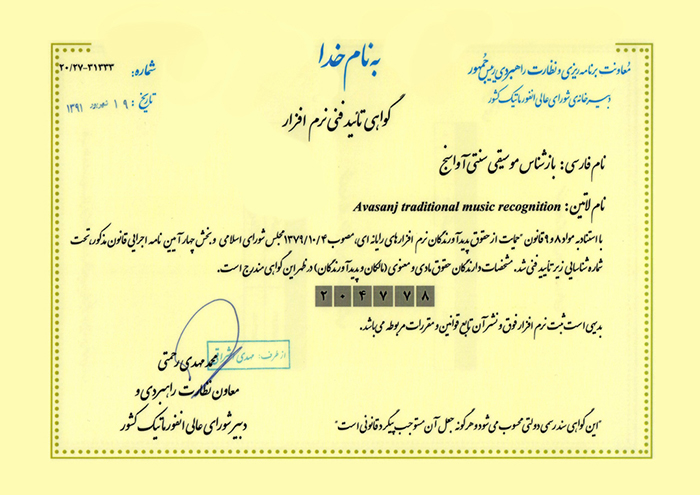 به نام خدا
معاونت برنامه ریزی و نظارت راهبردی رییس جمهور
دبیرخانه‌ی شورای عالی انفورماتیک کشور
شماره: ۲۰/۲۷-۳۱۳۳۳
تاریخ: ۱۹ شهریور ۱۳۹۱
گواهی تائید فنی نرم افزار
نام فارسی: بازشناس موسیقی سنتی آواسنج
نام لاتین: Avasanj traditional music recognition
با استناد به مواد ۸ و ۹ قانون "حمایت از حقوق پدیدآورندگان نرم افزارهای رایانه ای، مصوب ۱۳۷۹/۱۰/۴ مجلس شورای اسلامی و بخش چهار آیین نامه اجرایی قانون مذکور، تحت
شماره شناسایی زیر تایید فنی شد. مشخصات دارندگان حقوق مادی و معنوی (مالکان و پدیدآورندگان) در ظهر این گواهی مندرج است.
۲۰۴۷۷۸
بدیهی است ثبت نرم افزار فوق و نشر آن تابع قوانین و مقررات مربوطه می‌باشد.
از طرف: مهدی
محمد مهدی رحمتی
معاون نظارت راهبردی و
دبیر شورای عالی انفورماتیک کشور
"این گواهی سند رسمی دولتی محسوب می شود و هرگونه جعل آن مستوجب پیگرد قانونی است"